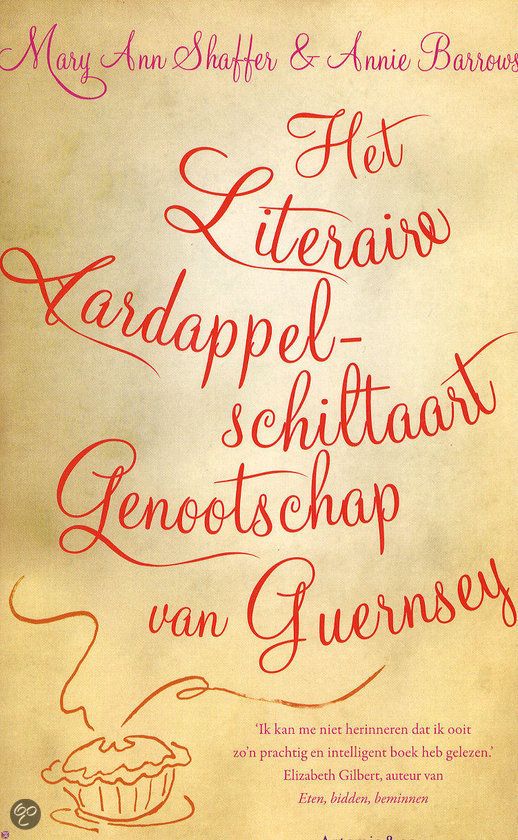 Mary Ann Shaffer & Annie Barrows
Het
Literaire
Aardappel-
schiltaart
Genootschap
van Guernsey
'Ik kan me niet herinneren dat ik ooit
zo'n prachtig en intelligent boek heb gelezen.'
Elizabeth Gilbert, auteur van
Eten, bidden, beminnen
go